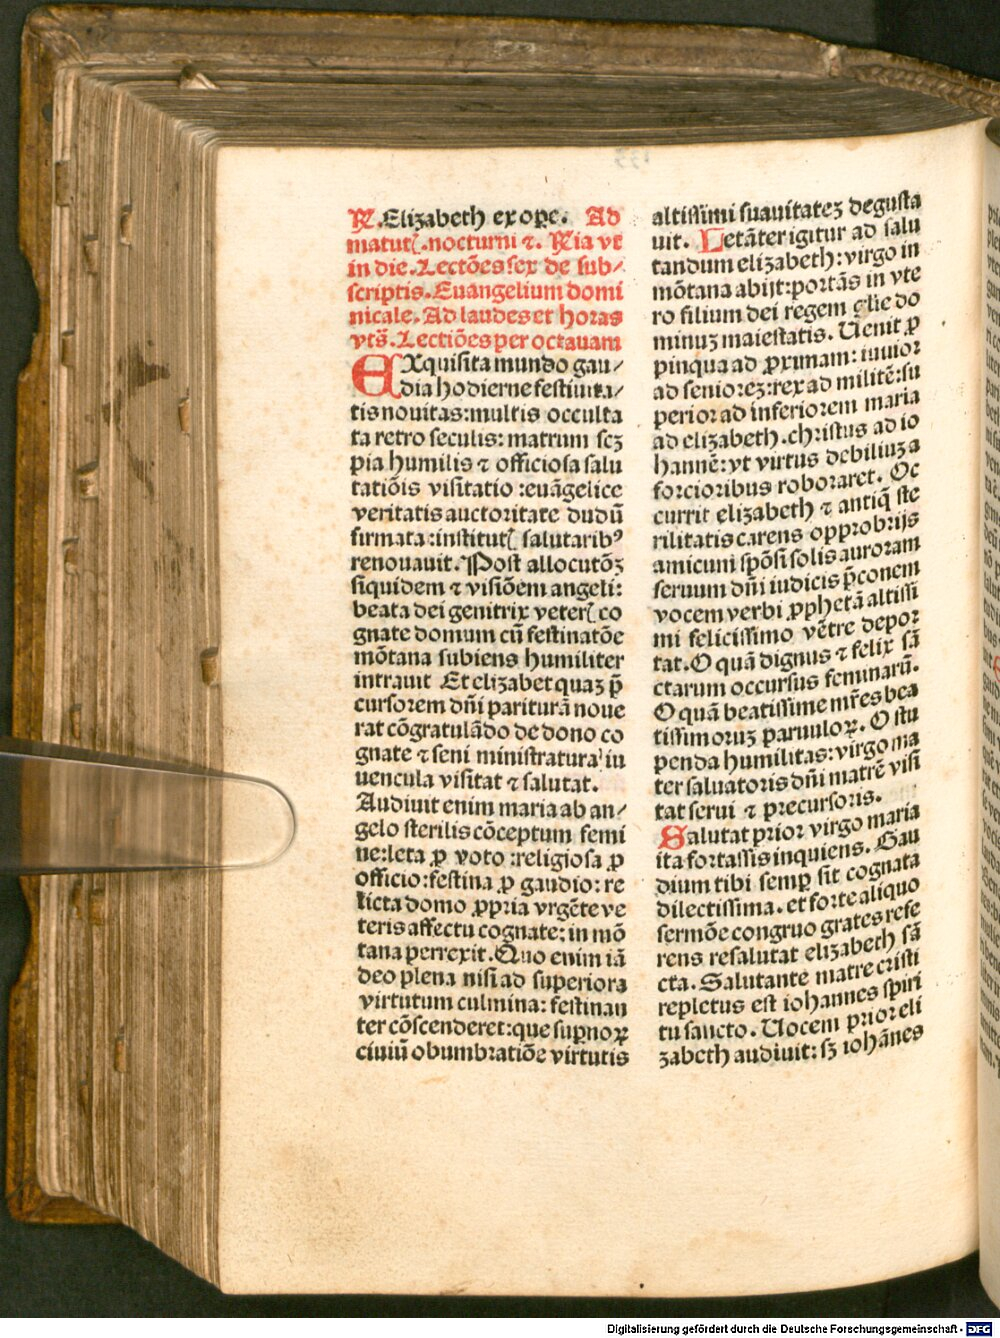 ℟. Elizabeth ex ope. Ad
matutꝭ. nocturni ⁊. ℟ia vt
in die. Lectōes sex de sub⸗
scriptis. Euangelium domi
nicale. Ad laudes et horas
vts̄. Lectiōes per octauam
EXquisita mundo gau⸗
dia hodierne festiuita⸗
tis nouitas: multis occulta
ta retro seculis: matrum scꝫ
pia humilis ⁊ officiosa salu
tatiōis visitatio: euāgelice
veritatis auctoritate dudū
firmata: institutꝭ salutaribꝰ
renouauit. Post allocutōꝫ
siquidem ⁊ visiōem angeli:
beata dei genitrix veterꝭ co
gnate domum cū festinatōe
mōtana subiens humiliter
intrauit Et elizabet quaꝫ p̄
cursorem dn̄i pariturā noue
rat cōgratulādo de dono co
gnate ⁊ seni ministratura iu
uencula visitat ⁊ salutat.
Audiuit enim maria ab an⸗
gelo sterilis cōceptum femi
ne: leta ꝓ voto: religiosa ꝓ
officio: festina ꝓ gaudio: re
licta domo ꝓpria vrgēte ve
teris affectu cognate: in mō
tana perrexit. Quo enim iā
deo plena nisi ad superiora
virtutum culmina: festinan
ter cōscenderet: que suꝑnoꝝ
ciuiū obumbratiōe virtutis
altissimi suauitateꝫ degusta
uit. Letāter igitur ad salu
tandum elizabeth: virgo in
mōtana abijt: portās in vte
ro filium dei regem glīe do
minuꝫ maiestatis. Uenit ꝓ
pinqua ad ꝓximam: iunior
ad senioreꝫ: rex ad militē: su
perior ad inferiorem maria
ad elizabeth. christus ad io
hannē: vt virtus debiliuꝫ a
forcioribus roboraret. Oc
currit elizabeth ⁊ antiq̄ ste
rilitatis carens opprobrijs
amicum spōsi solis auroram
seruum dn̄i iudicis p̄conem
vocem verbi ꝓphetā altissi
mi felicissimo vētre depor
tat. O quā dignus ⁊ felix sā
ctarum occursus feminarū.
O quā beatissime mr̄es bea
tissimoruꝫ paruuloꝝ. O stu
penda humilitas: virgo ma
ter saluatoris dn̄i matrē visi
tat serui ⁊ precursoris.
Salutat prior virgo maria
ita fortassis inquiens. Gau
dium tibi semꝑ sit cognata
dilectissima. et forte aliquo
sermōe congruo grates refe
rens resalutat elizabeth sā
cta. Salutante matre cristi
repletus est iohannes spiri
tu sancto. Uocem prior eli
zabeth audiuit: sꝫ iohānes
Digitalisierung gefördert durch die Deutsche Forschungsgemeinschaft - DFG